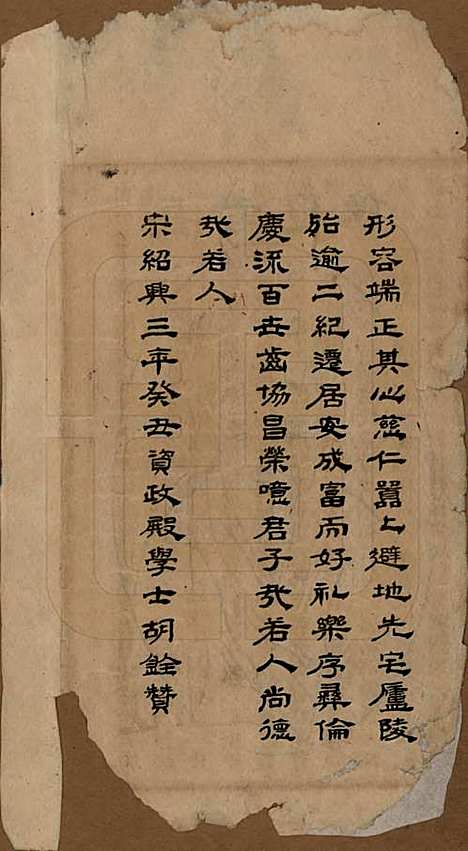 形容端正其心慈仁囂上避地先宅廬陵
殆逾二紀遷居安成富而好礼樂序彝倫
慶流百世齒協昌榮噫君子㢤若人尚德
㢤若人
宋紹興三年癸丑資政殿學士胡銓贊